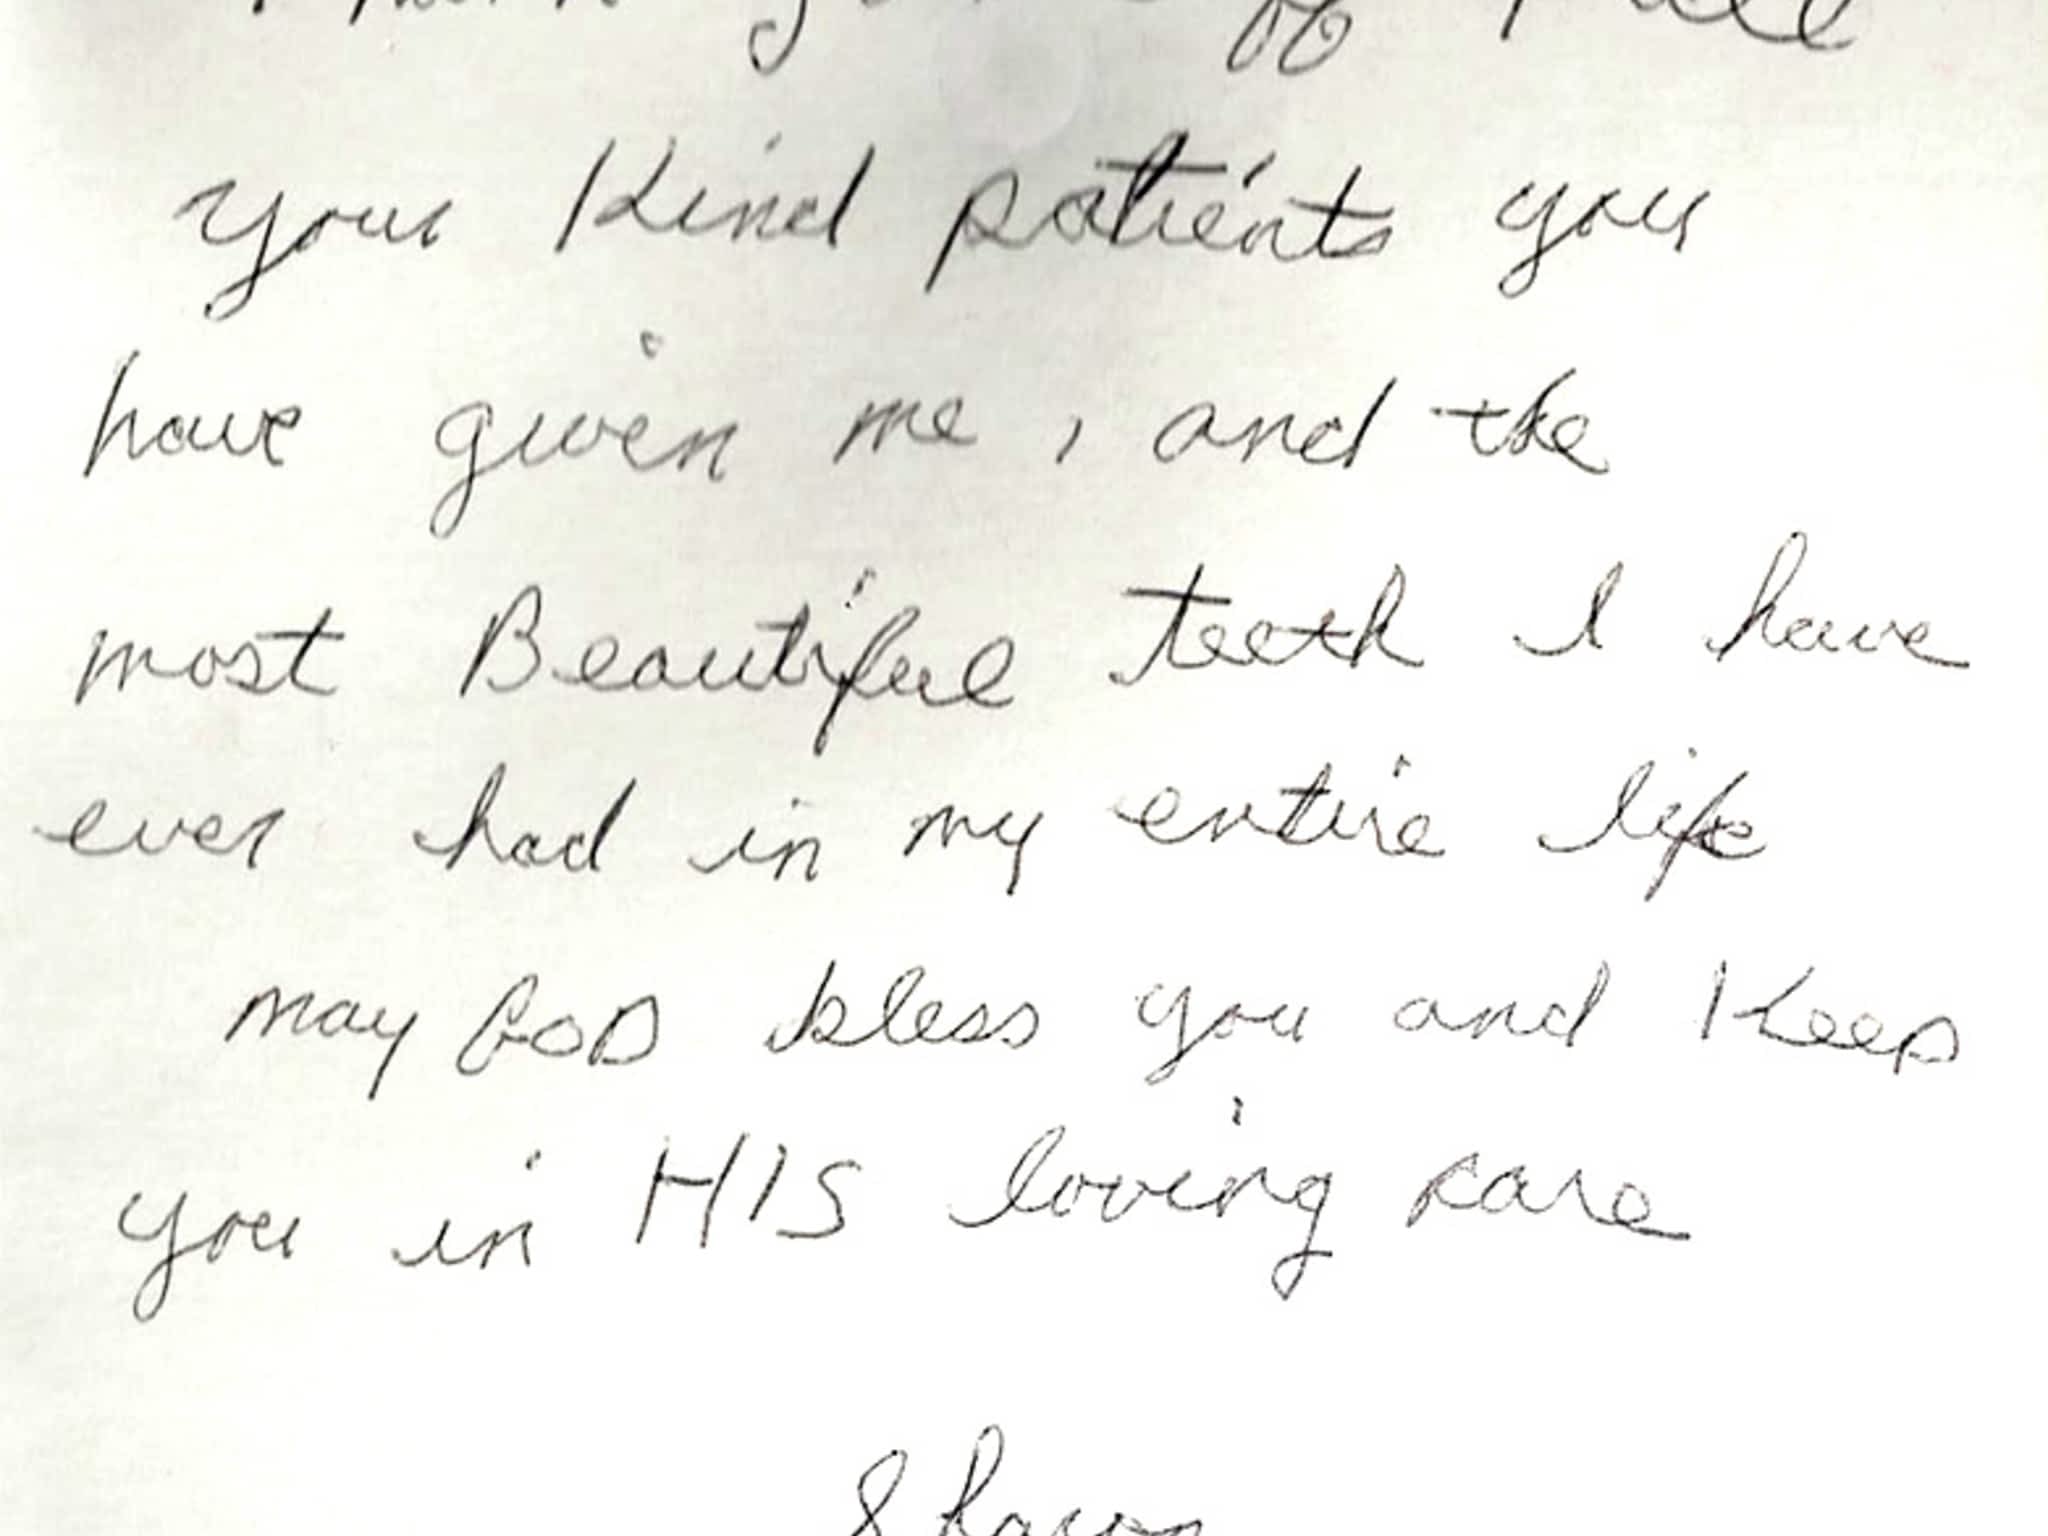 your Kind patients you
have given me, and the
most Beautiful teeth I have
ever had in my entire life
may GOD bless you and Keep
you in HIS loving care
Sharon